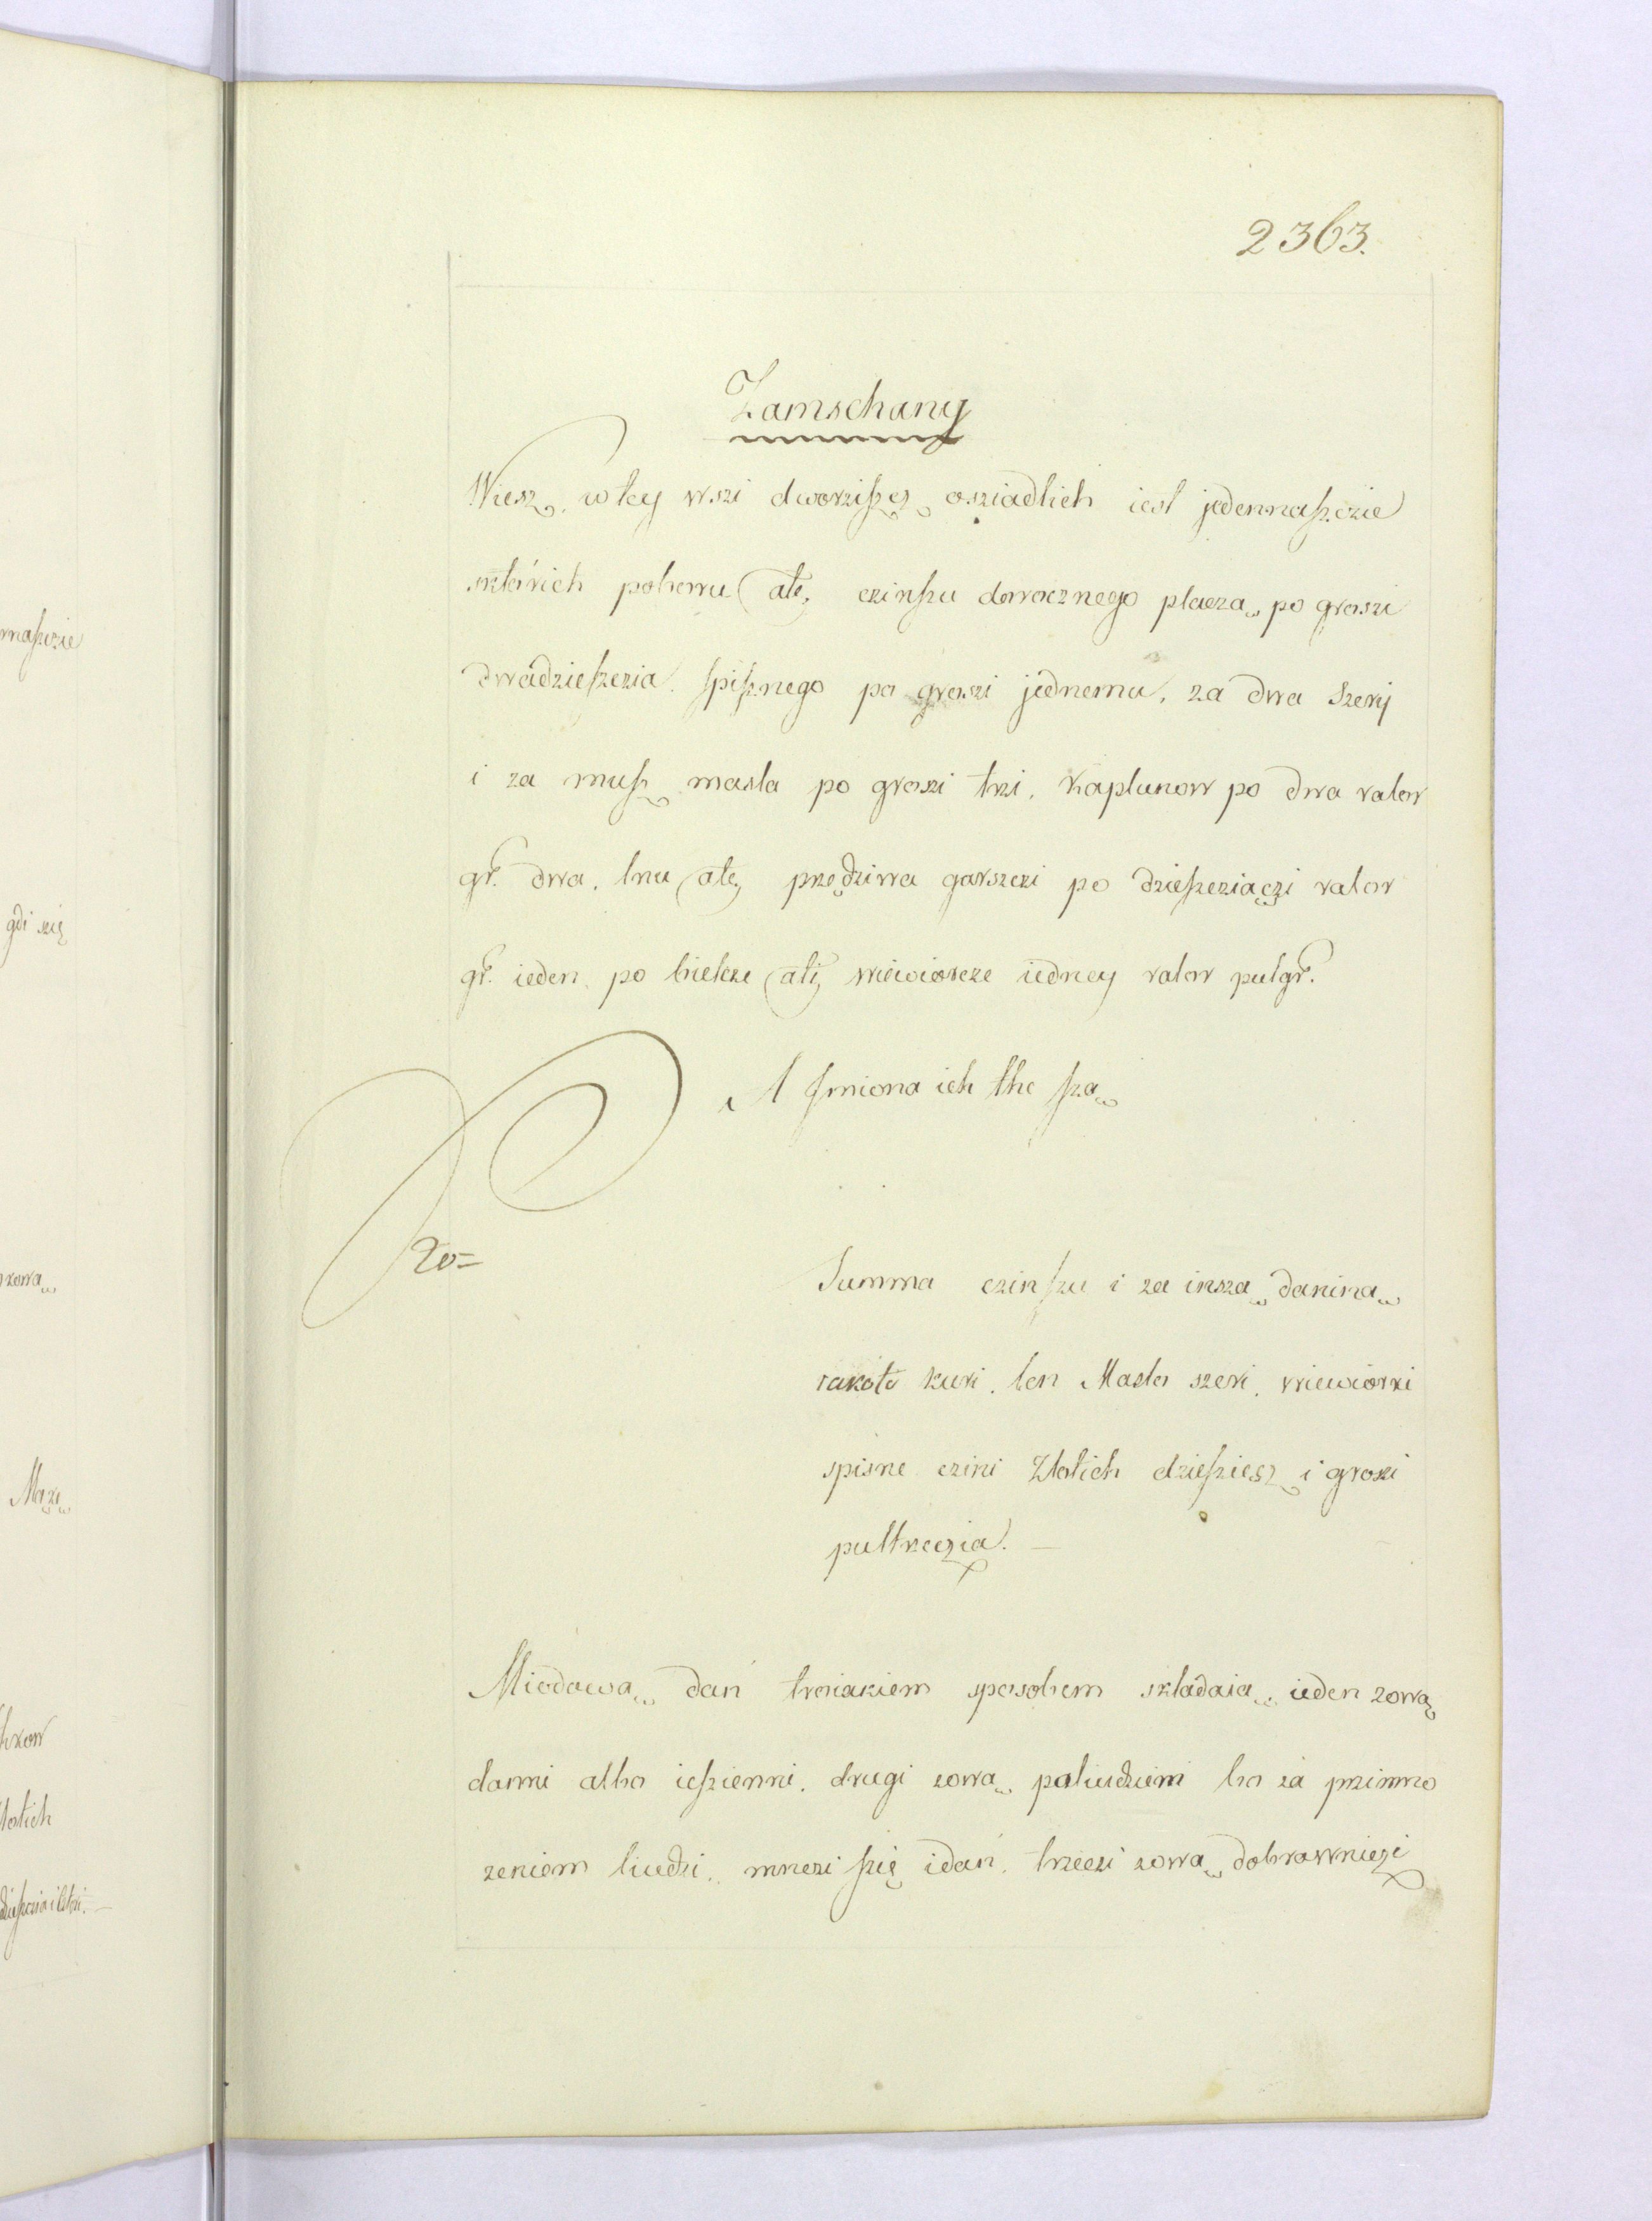 2363.
Zamschany
Wiesz. wtey wszi dworziszcz osziadlich iest jedennaszczie
sktórich poborru ałe, czinszu dorocznego placza po groszi
dwadzieszczia. spisznego po groszi jednemu. za dwa szery
i za musz masla po groszi trzi. Kaplunow po dwa valor
gr. dwa. lnu ałe, przędziwa garszczi po dzieszcziączi valor
gr. ieden. po bielcze ałi, wiewiorcze iedney valor pulgr.
A Jmiona ich the sza
Summa czinszu i za insza danina
iakoto kuri. len Maslo szeri. wiewiórki
spisne czini Zlotich dziesziesz i groszi
pultrzeczia. —
Miodowa dań troiakiem sposobem skladaia. ieden zową
danni albo ieszienni. drugi zowa poliudziem bo za przimno
zeniem liudzi. mnozi szię idań. trzeczi zowa dobrowniczi
maszczie
gdi szię
zowa
hzow
lotich